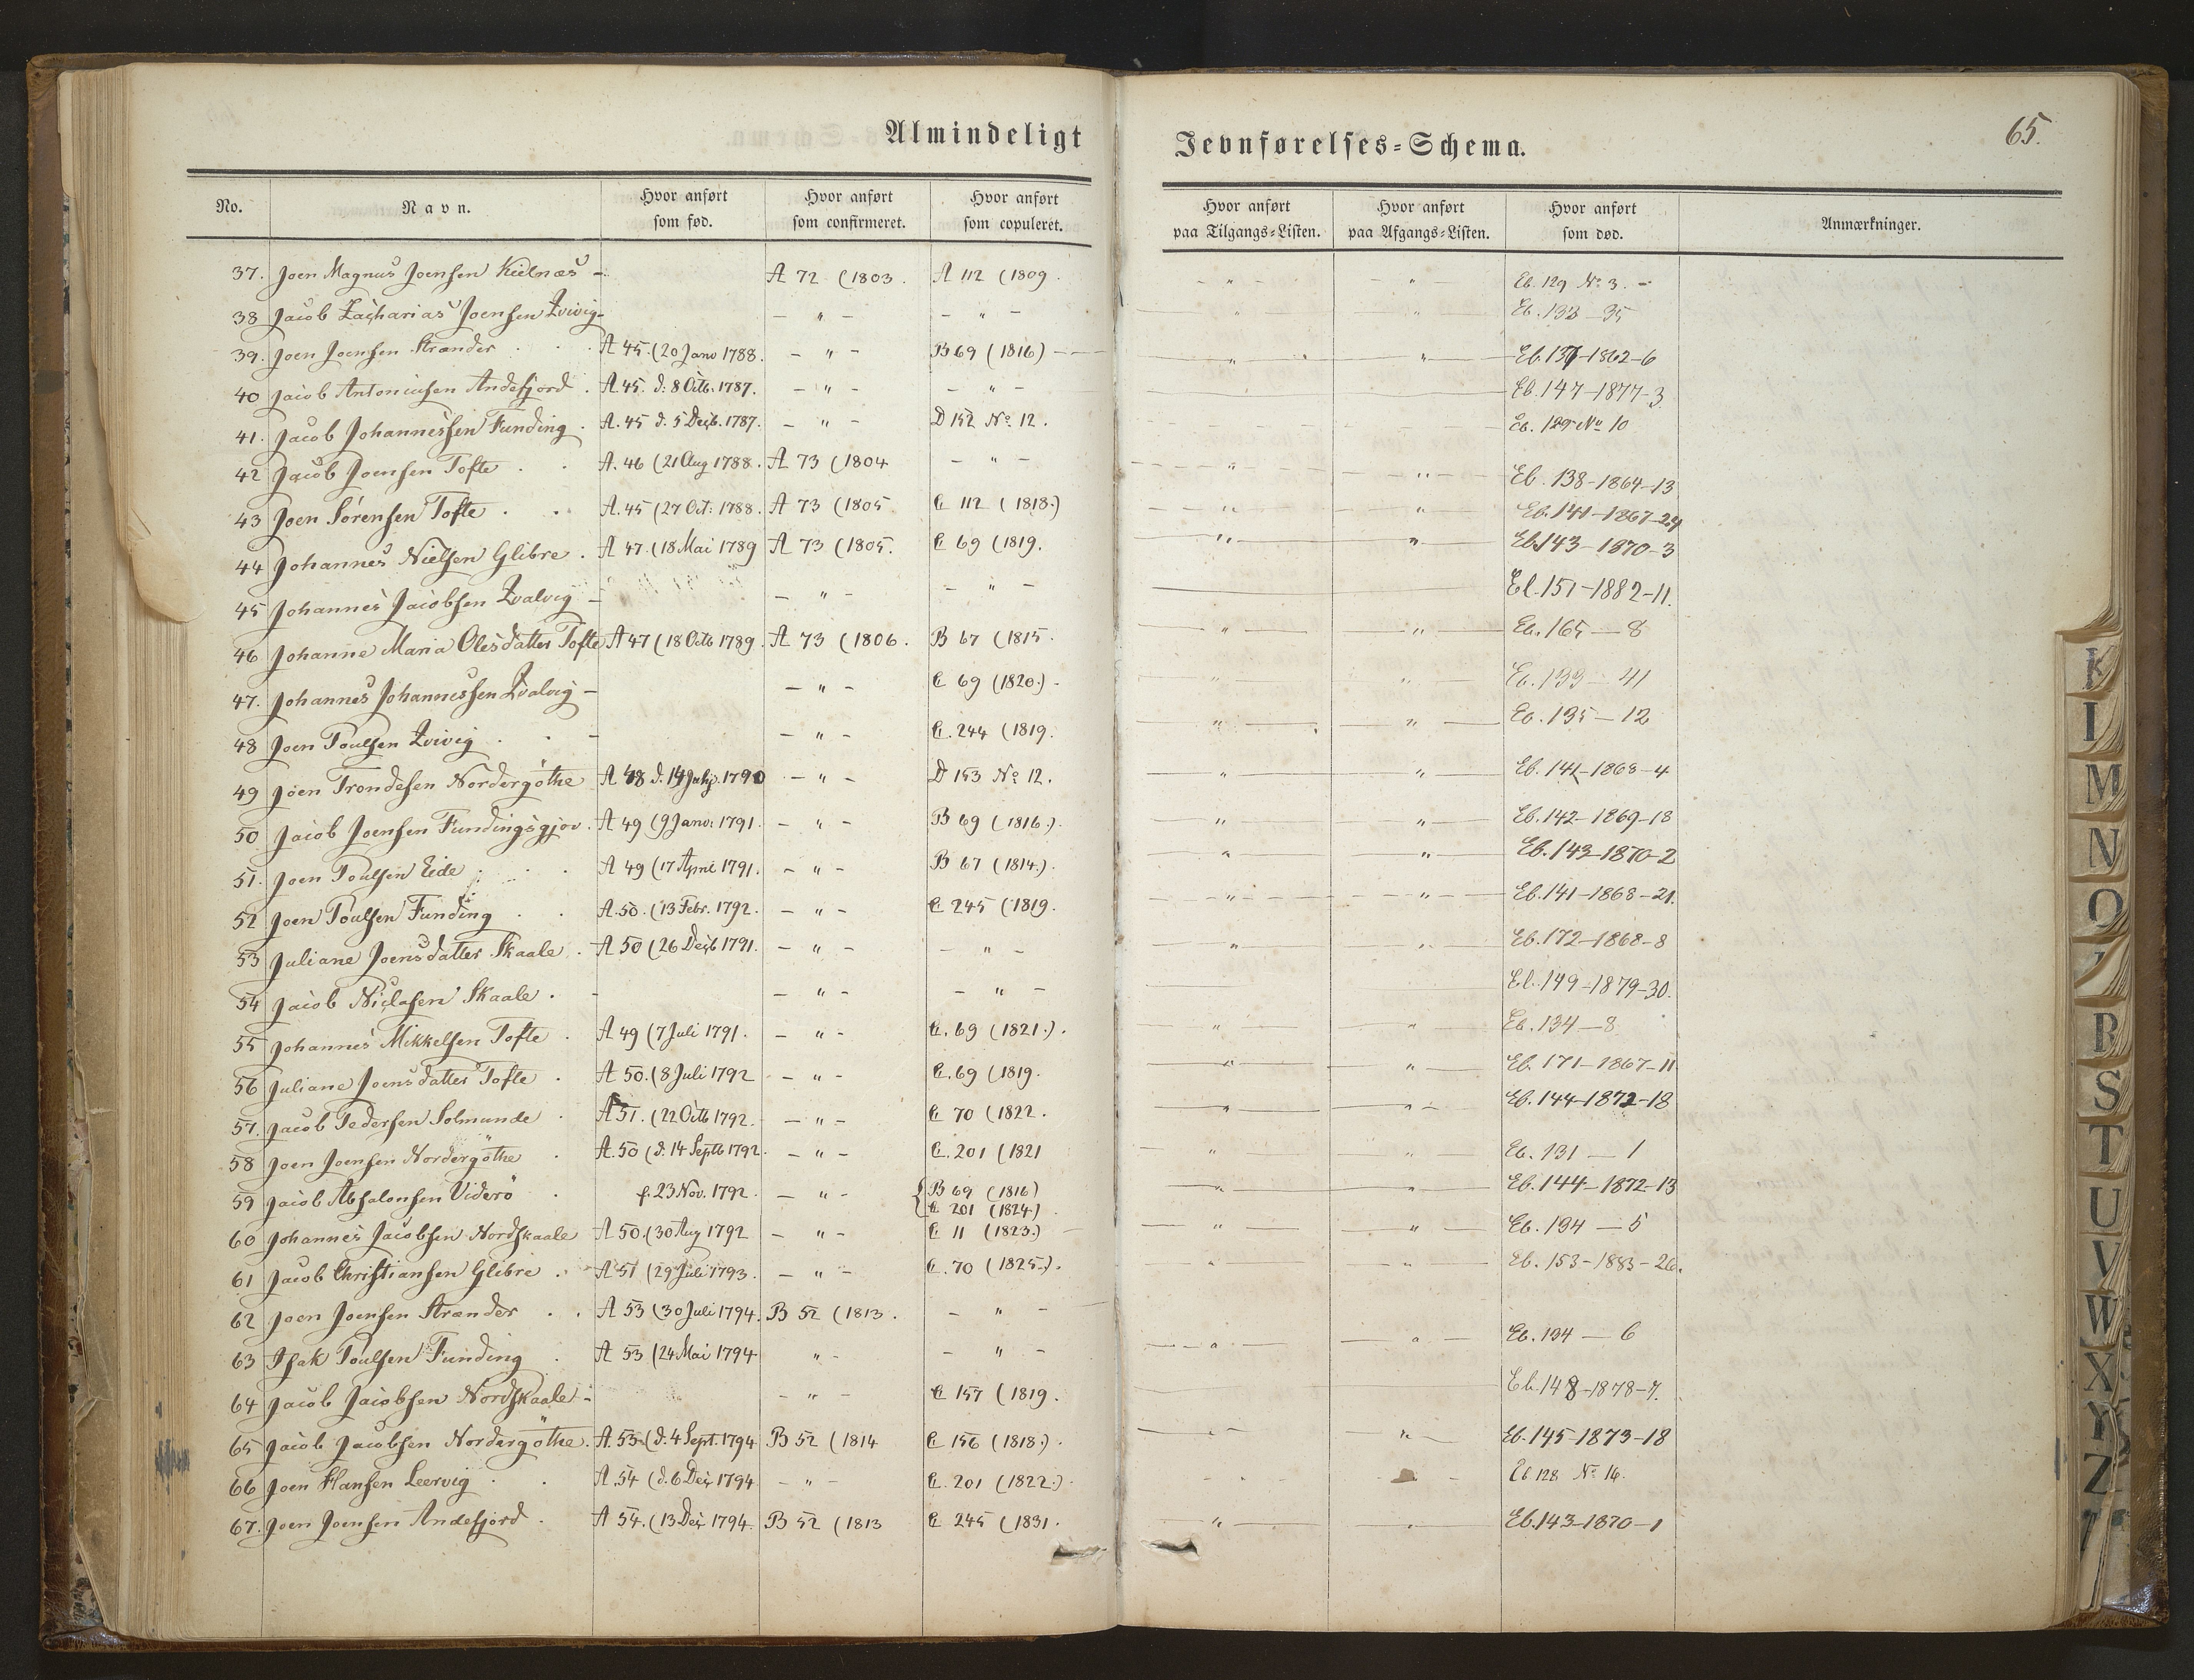 Almindeligt Jevnførelses=Schema. 65.
No. Navn. Hvor anført som fød. Hvor anført som confirmeret. Hvor anført som copuleret. Hvor anført paa Tilgangs=Listen. Hvor anført paa Afgangs=Listen. Hvor anført som død. Anmærkninger.
37. Joen Magnus Joensen Kielnæs - A 72 (1803. A 112 (1809. - " - - " - Eb. 129 No 3. -
38 Jacob Zacharias Joensen Qvivig - - " - - " - " " Eb. 133 - 35
39. Joen Joensen Strænder . . A 45. (20 Janv 1788. - " - B 69 (1816) - - " " Eb. 137-1862-6
40 Jacob Antoniusen Andefjord . A 45. d: 8 Octb. 1787. - " - - " - Eb. 147-1877-3.
41. Jacob Johannessen Funding . A. 45 d. 5 Decb. 1787. - " - D 152 No 12. Eb. 129 No 10
42 Jacob Joensen Tofte . . A. 46 (21 Aug 1788. A 73 (1804 - " - " " Eb. 138-1864-13
43 Joen Sørensen Tofte . . A. 45 (27 Oct: 1788. A 73 (1805 C 112 (1818.) " " Eb. 141-1867-24
44 Johannes Nielsen Glibre . A 47. (18 Mai 1789 A 73 (1805. C 69 (1819. " " Eb. 143-1870-3
45 Johannes Jacobsen Qvalvig - - " - - " - Eb. 151-1882-11.
46 Johanne Maria Olesdatter Tofte A 47 (18 Octb 1789. A 73 (1806. B 67 (1815. " " Eb. 165 - 8
47. Johannes Johannessen Qvalvig - - " - C 69 (1820.) - " " Eb. 133 - 41
48 Joen Poulsen Qvivig . . - - " - C. 244 (1819. " " Eb. 135 - 12
49 Joen Trondesen Nordergøthe A 48 d. 14 July. 1790 - " - D 153 No 12. " " Eb. 141-1868-4
50 Jacob Joensen Fundingsgjov. A 49 (9 Janv: 1791. - " - B 69 (1816.). " " Eb. 142-1869-18
51. Joen Poulsen Eide . . A 49 (17 April 1791. - " - B 67 (1814.). " " Eb. 143-1870-2
52 Joen Poulsen Funding . . A. 50. (13 Febr. 1792. - " - C 245 (1819. " " Eb. 141-1868-21.
53 Juliane Joensdatter Skaale . A 50 (26 Decb 1791. - " - - " - " " Eb. 172-1868-8
54 Jacob Niclasen Skaale . - - " - - " - Eb. 149-1879-30.
55 Johannes Mikkelsen Tofte . A 49 (7 Juli 1791. - " - C. 69 (1821.). " " Eb. 134-8
56 Juliane Joensdatter Tofte . A 50. (8 Juli 1792 - " - C. 69 (1819. " " Eb. 171-1867-11.
57. Jacob Pedersen Solmunde . A 51. (22 Octb 1792. - " - C 70 (1822. " " Eb. 144-1872-18
58 Joen Joensen Nordergøthe . A. 50 (d: 14 Septb 1792. - " - C. 201 (1821 " " Eb. 131 - 1
59 Jacob Absalonsen Viderø . f. 23 Nov. 1792. - " - { B 69 (1816) " " Eb. 144-1872-13
C 201 (1824.)
60 Johannes Jacobsen Nordskaale A 50. (30 Aug 1792 - " - C 11 (1823.) " " Eb. 134 - 5
61 Jacob Christiansen Glibre . A 51 (29 Juli 1793. - " - C. 70 (1825.). " " Eb. 153-1883-26.
62 Joen Joensen Strænder . . A 53 (30 Juli 1794. B 52 (1813. - " -
63 Isak Poulsen Funding . A 53 (24 Mai 1794 " - - " - " " Eb. 134 - 6
64 Jacob Jacobsen Nordskaale - - " - C 157 (1819. Eb. 148-1878-7.
65 Jacob Jacobsen Nordergøthe. A. 53 (d. 4 Sept. 1794 B 52 (1814 C 156 (1818.). " " Eb. 145-1873-18
66 Joen Hansen Leervig . . A. 54 (d. 6 Dec 1794 - " - C. 201 (1822.). " Eb 128 No 16.
67. Joen Joensen Andefjord . A 54. (13 Dec 1794. B 52 (1813 C 245 (1831. " " Eb. 143-1870-1
K
M
N
O
R
S
T
U
V
W
X
Y
Z